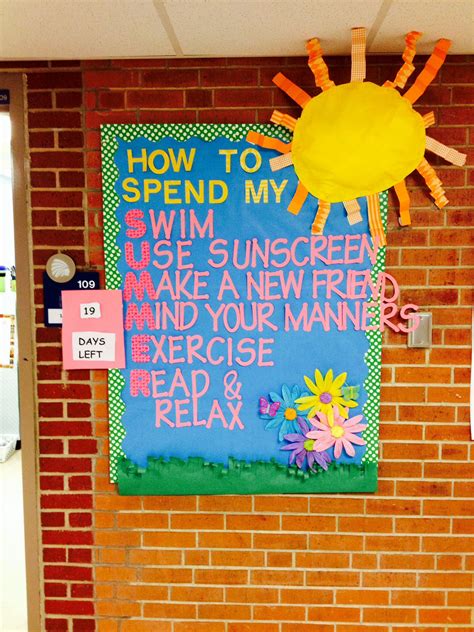 HOW TO
SPEND MY
SWIM
USE SUNSCREEN
MAKE A NEW FRIEND
MIND YOUR MANNERS
EXERCISE
READ &
RELAX
109
19
DAYS
LEFT